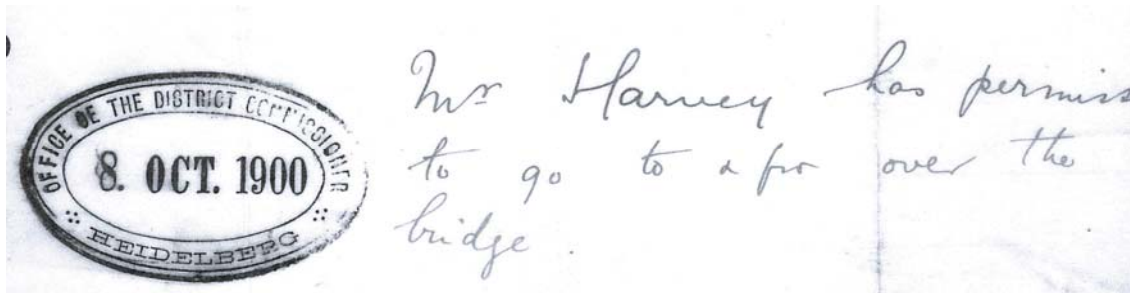 OFFICE OF THE DISTRICT COMMISSIONER
8. OCT. 1900
HEIDELBERG
Mr Harvey has permiss
to go to & fro over the
bridge.